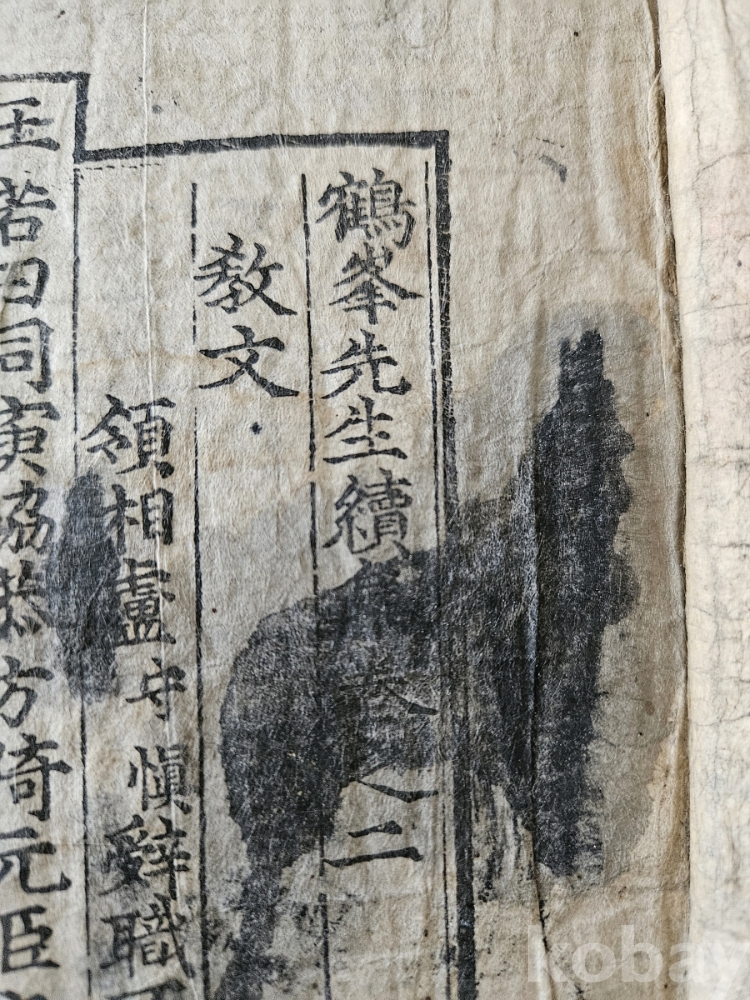 鶴峯先生續集卷之二
敎文
領相盧守愼辭職不
王若曰同寅協恭方倚元臣
kobay